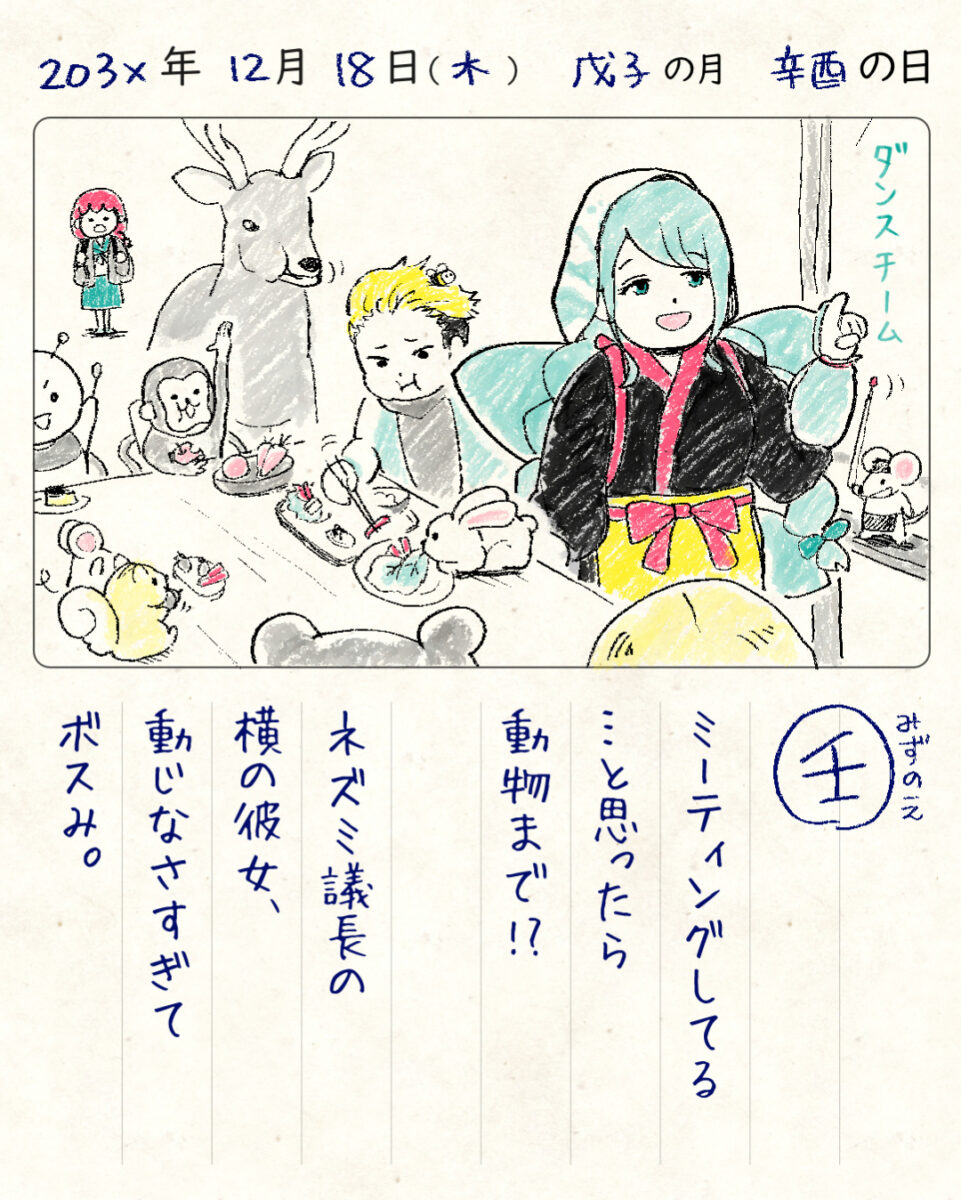 203x年 12月 18日(木) 戊子の月 辛酉の日
ダンスチーム
みずのえ
壬
ミーティングしてる
…と思ったら
動物まで!?
ネズミ議長の
横の彼女、
動じなさすぎて
ボスみ。